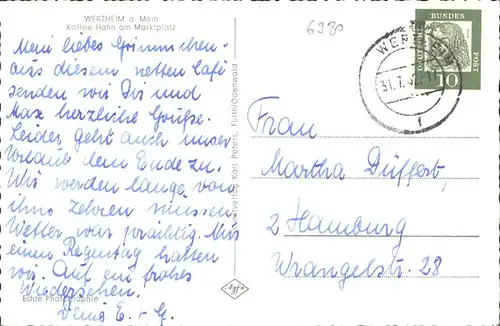 WERTHEIM a. Main
Kaffee Hahn am Marktplatz
Mein liebes Grimmchen.
aus diesem netten Café
senden wir Dir und
Max herzliche Grüße.
Leider geht auch unser
Urlaub dem Ende zu.
Wir werden lange von
ihm zehren müssen
Wetter war prächtig. Nur
einen Regentag hatten
wir. Auf ein frohes
Wiedersehen.
E. + G.
Echte Photographie
Karl Peters, Fürth/Odenwald
6980
WERTHEIM
31.7.
1
DEUTSCHE BUNDES POST
10
Frau
Martha Düffert,
2 Hamburg
Wrangelstr. 28